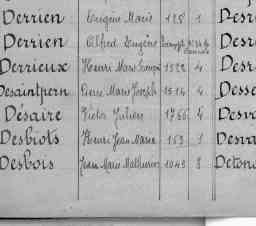 Derrien Eugène Marie 128 1 Desr
Derrien Alfred Eugène Desr
Derrieux Henri Marie 1522 4 Desr
Desaintpern Pierre Marie Joseph 1514 4 Desse
Désaire Victor Julien 1766 4 Desv
Desbiots Henri Jean Marie 153 1 Desva
Desbois Jean Marie Mathurin 1043 3 Deton